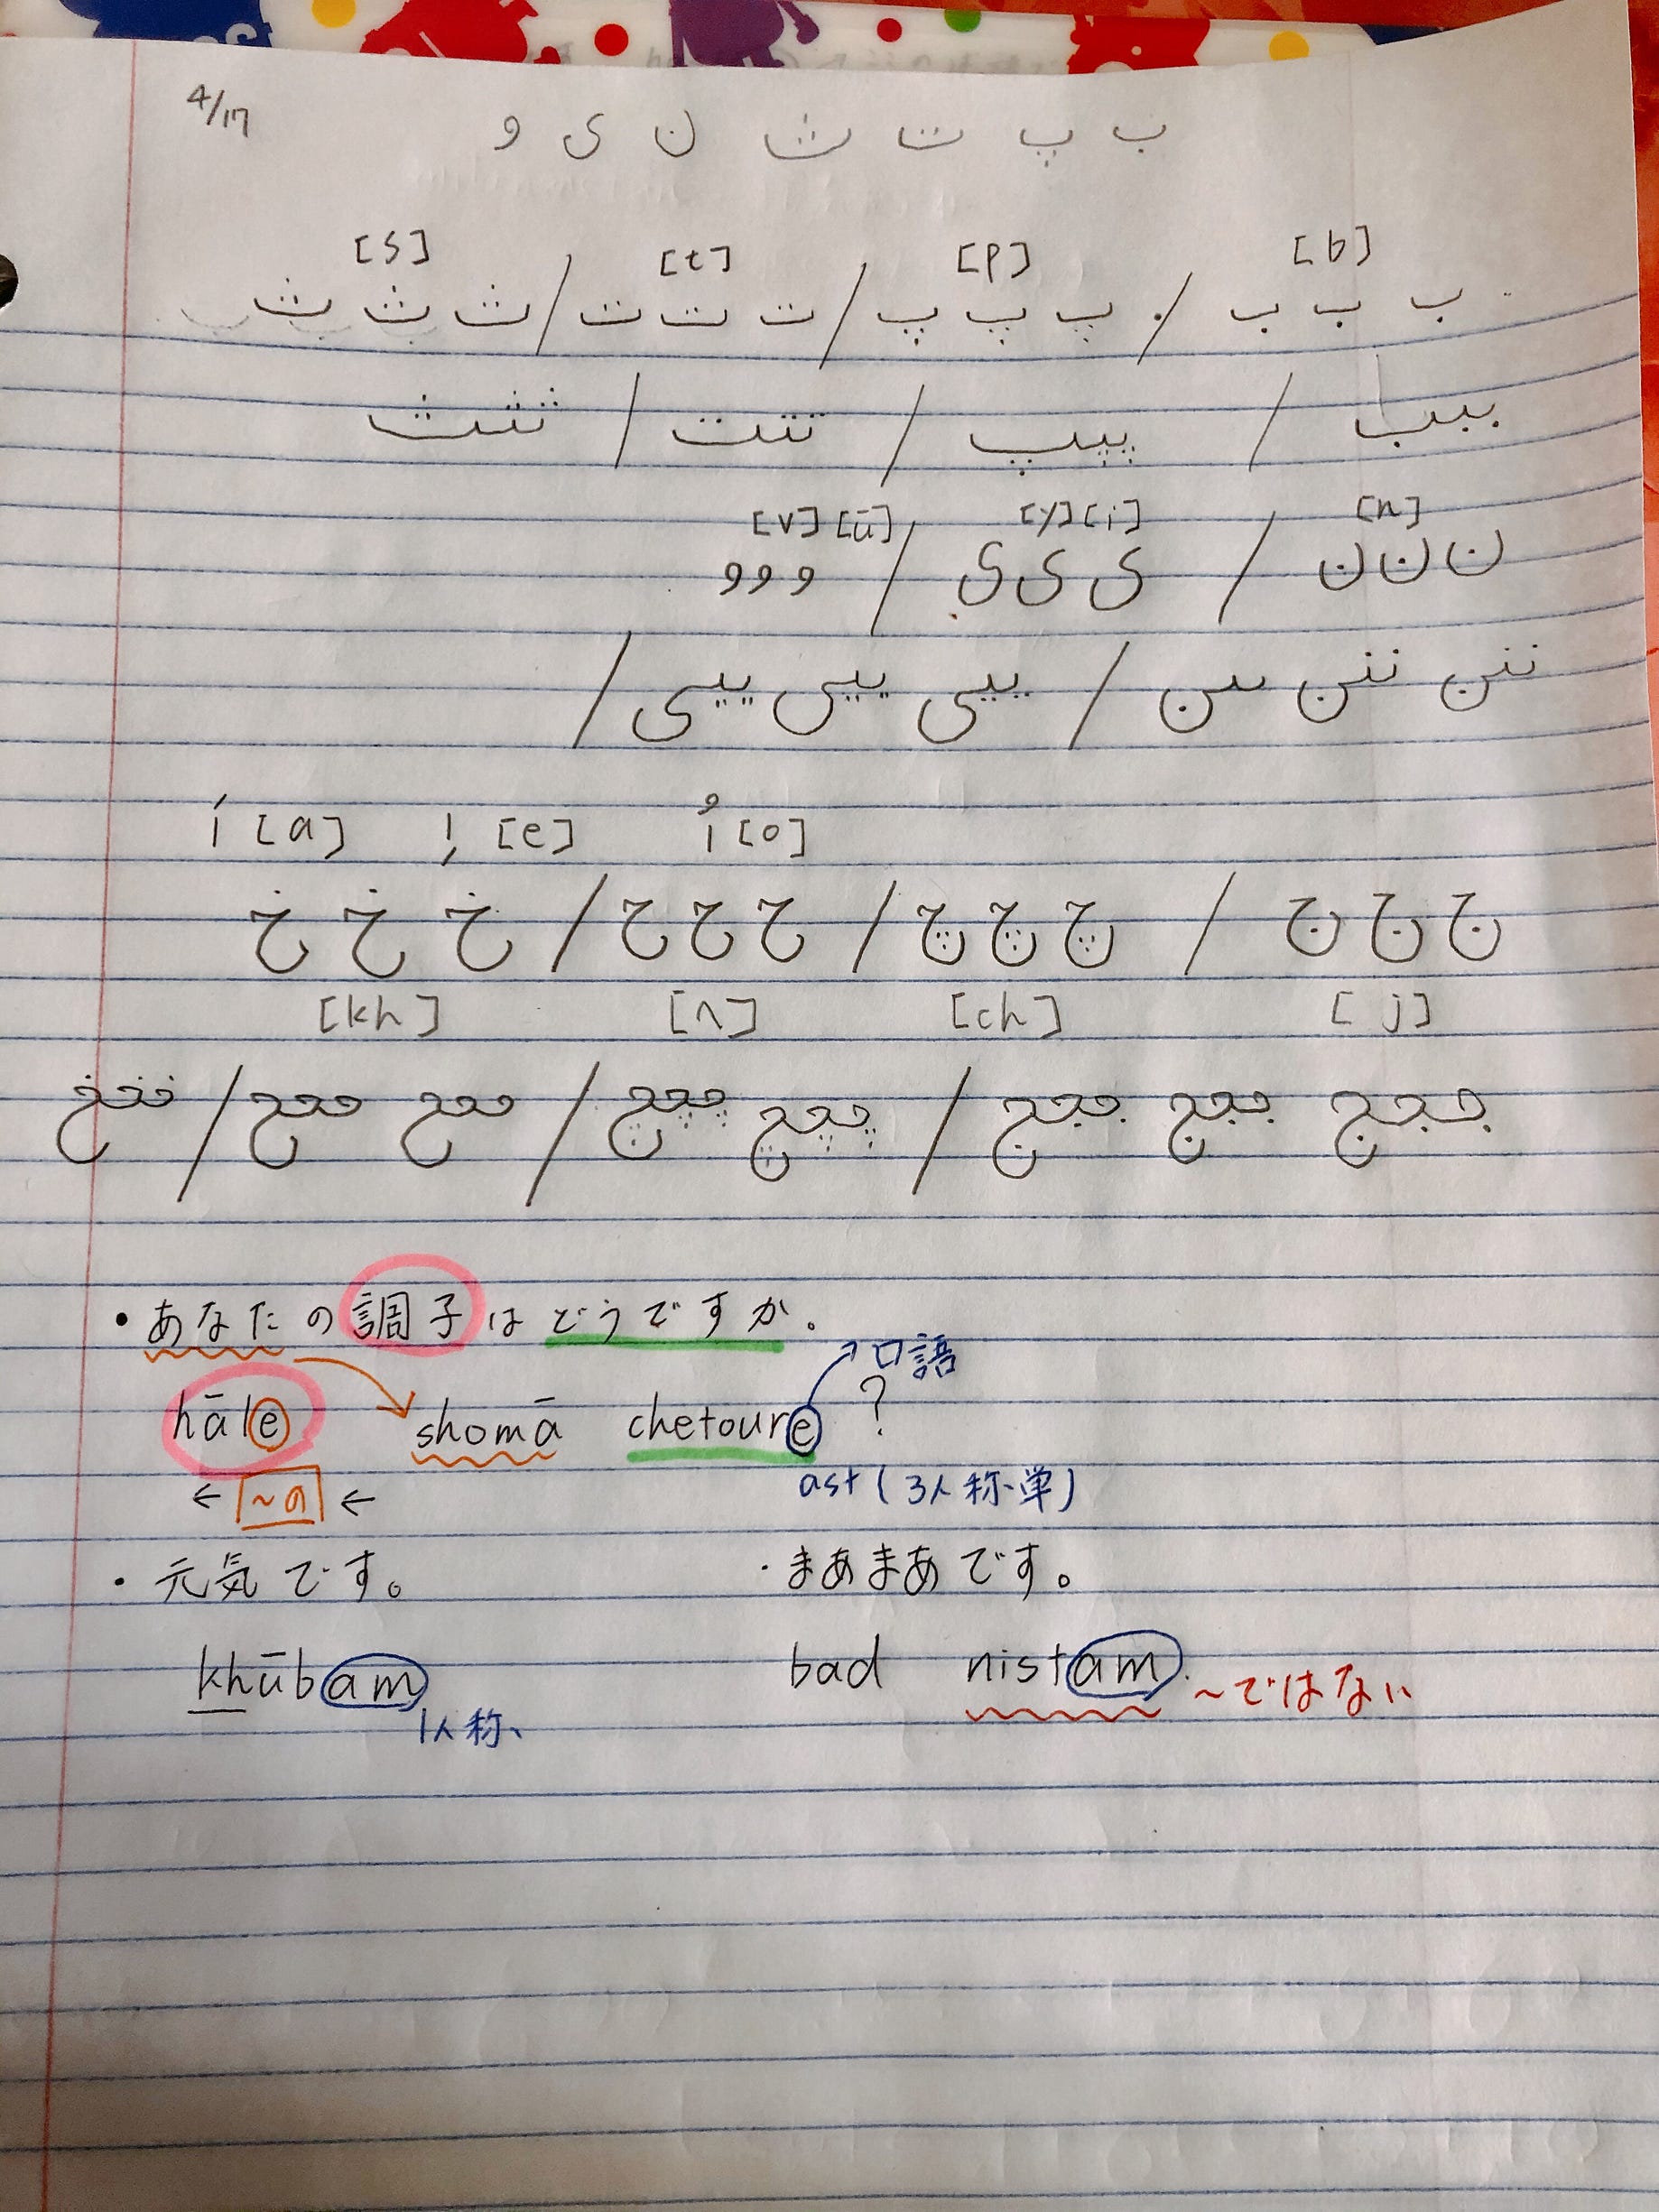 4/17
ب پ ت ث ن ی و
[b] [p] [t] [s]
ب ب ب / پ پ پ / ت ت ت / ث ث ث
ببب / پپپ / تتت / ثثث
[n] [y] [i] [v] [ū]
ن ن ن / ی ی ی / و و و
ننن ننن ننن / ییی ییی ییی /
اَ [a] اِ [e] اُ [o]
ج ج ج / چ چ چ / ح ح ح / خ خ خ
[j] [ch] [h] [kh]
ججج ججج ججج / چچچ چچچ / ححح ححح / خخخ
・あなたの調子はどうですか.
口語
hāle shomā chetoure ?
← ~の ← ast (3人称・単)
・元気です。 ・まあまあです。
khūbam bad nistam. ~ではない
1人称、